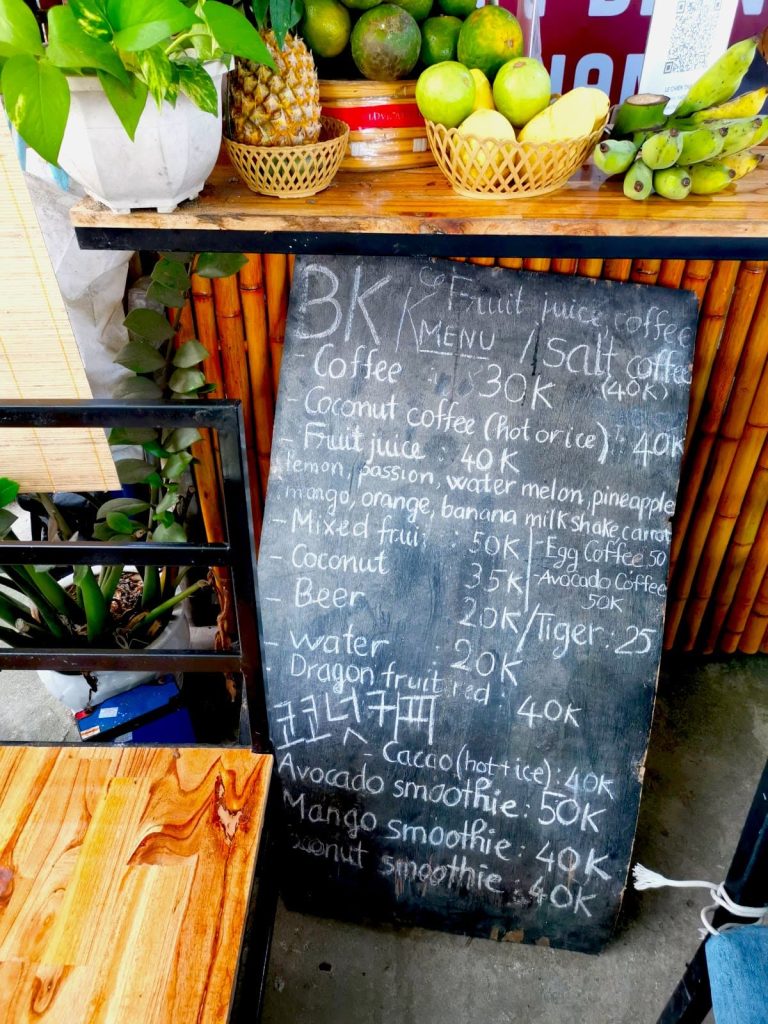 LE CHIEN
LOVE
3K Fruit juice, coffee
MENU / Salt coffee
- Coffee : 30K (40K)
- Coconut coffee (hot or ice) : 40K
- Fruit juice : 40K
lemon, passion, water melon, pineapple
mango, orange, banana milkshake, carrot
- Mixed fruit : 50K
- Egg Coffee 50
- Coconut 35K
- Avocado Coffee
50K
- Beer 20K / Tiger : 25
- water : 20K
. Dragon fruit red : 40K
코코넛 커피
- Cacao (hot + ice) : 40K
Avocado smoothie : 50K
Mango smoothie : 40K
Coconut smoothie : 40K